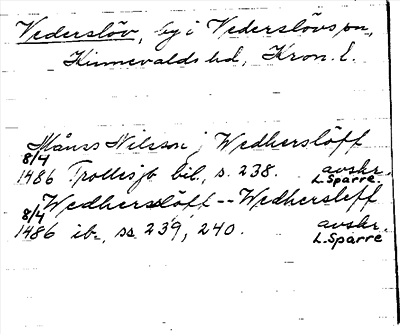 Vederslöv, by i Vederslövs sn,
Kinnevalds hd, Kron. l.
Månss Nilsson j Wedherslöff
8/4 1486 Trollesjö bil, s. 238. avskr. L. Sparre
Wedherslöff -- Wedhersleff
8/4 1486 ib., ss 239, 240. avskr. L. Sparre